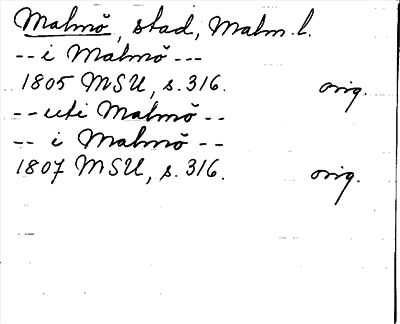 Malmö, stad, Malm. l.
-- i Malmö ---
1805 MSU, s. 316. orig.
-- uti Malmö --
-- i Malmö --
1807 MSU, s. 316. orig.